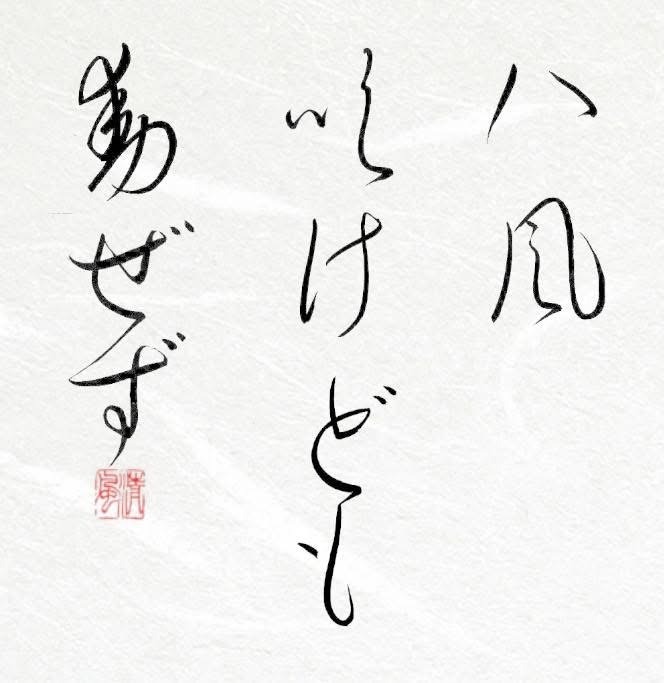 八風
吹けども
動ぜず
清風